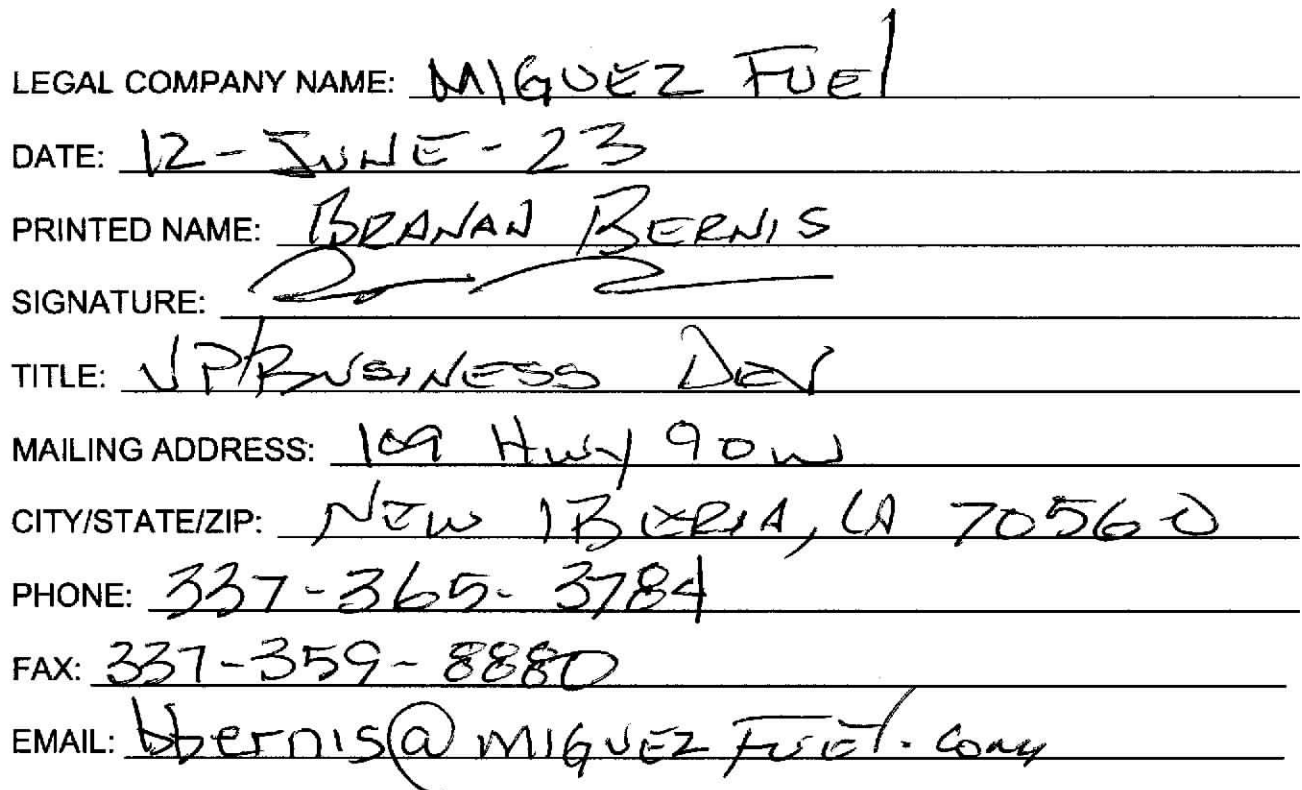 LEGAL COMPANY NAME: MIGUEZ FUEl
DATE: 12-JUNE-23
PRINTED NAME: BRANAN BERNIS
SIGNATURE:
TITLE: VP/BUSINESS DEV
MAILING ADDRESS: 109 Hwy 90 W
CITY/STATE/ZIP: NEW IBERIA, LA 70560
PHONE: 337-365-3784
FAX: 337-359-8880
EMAIL: bbernis@MIGUEZFUEl.com